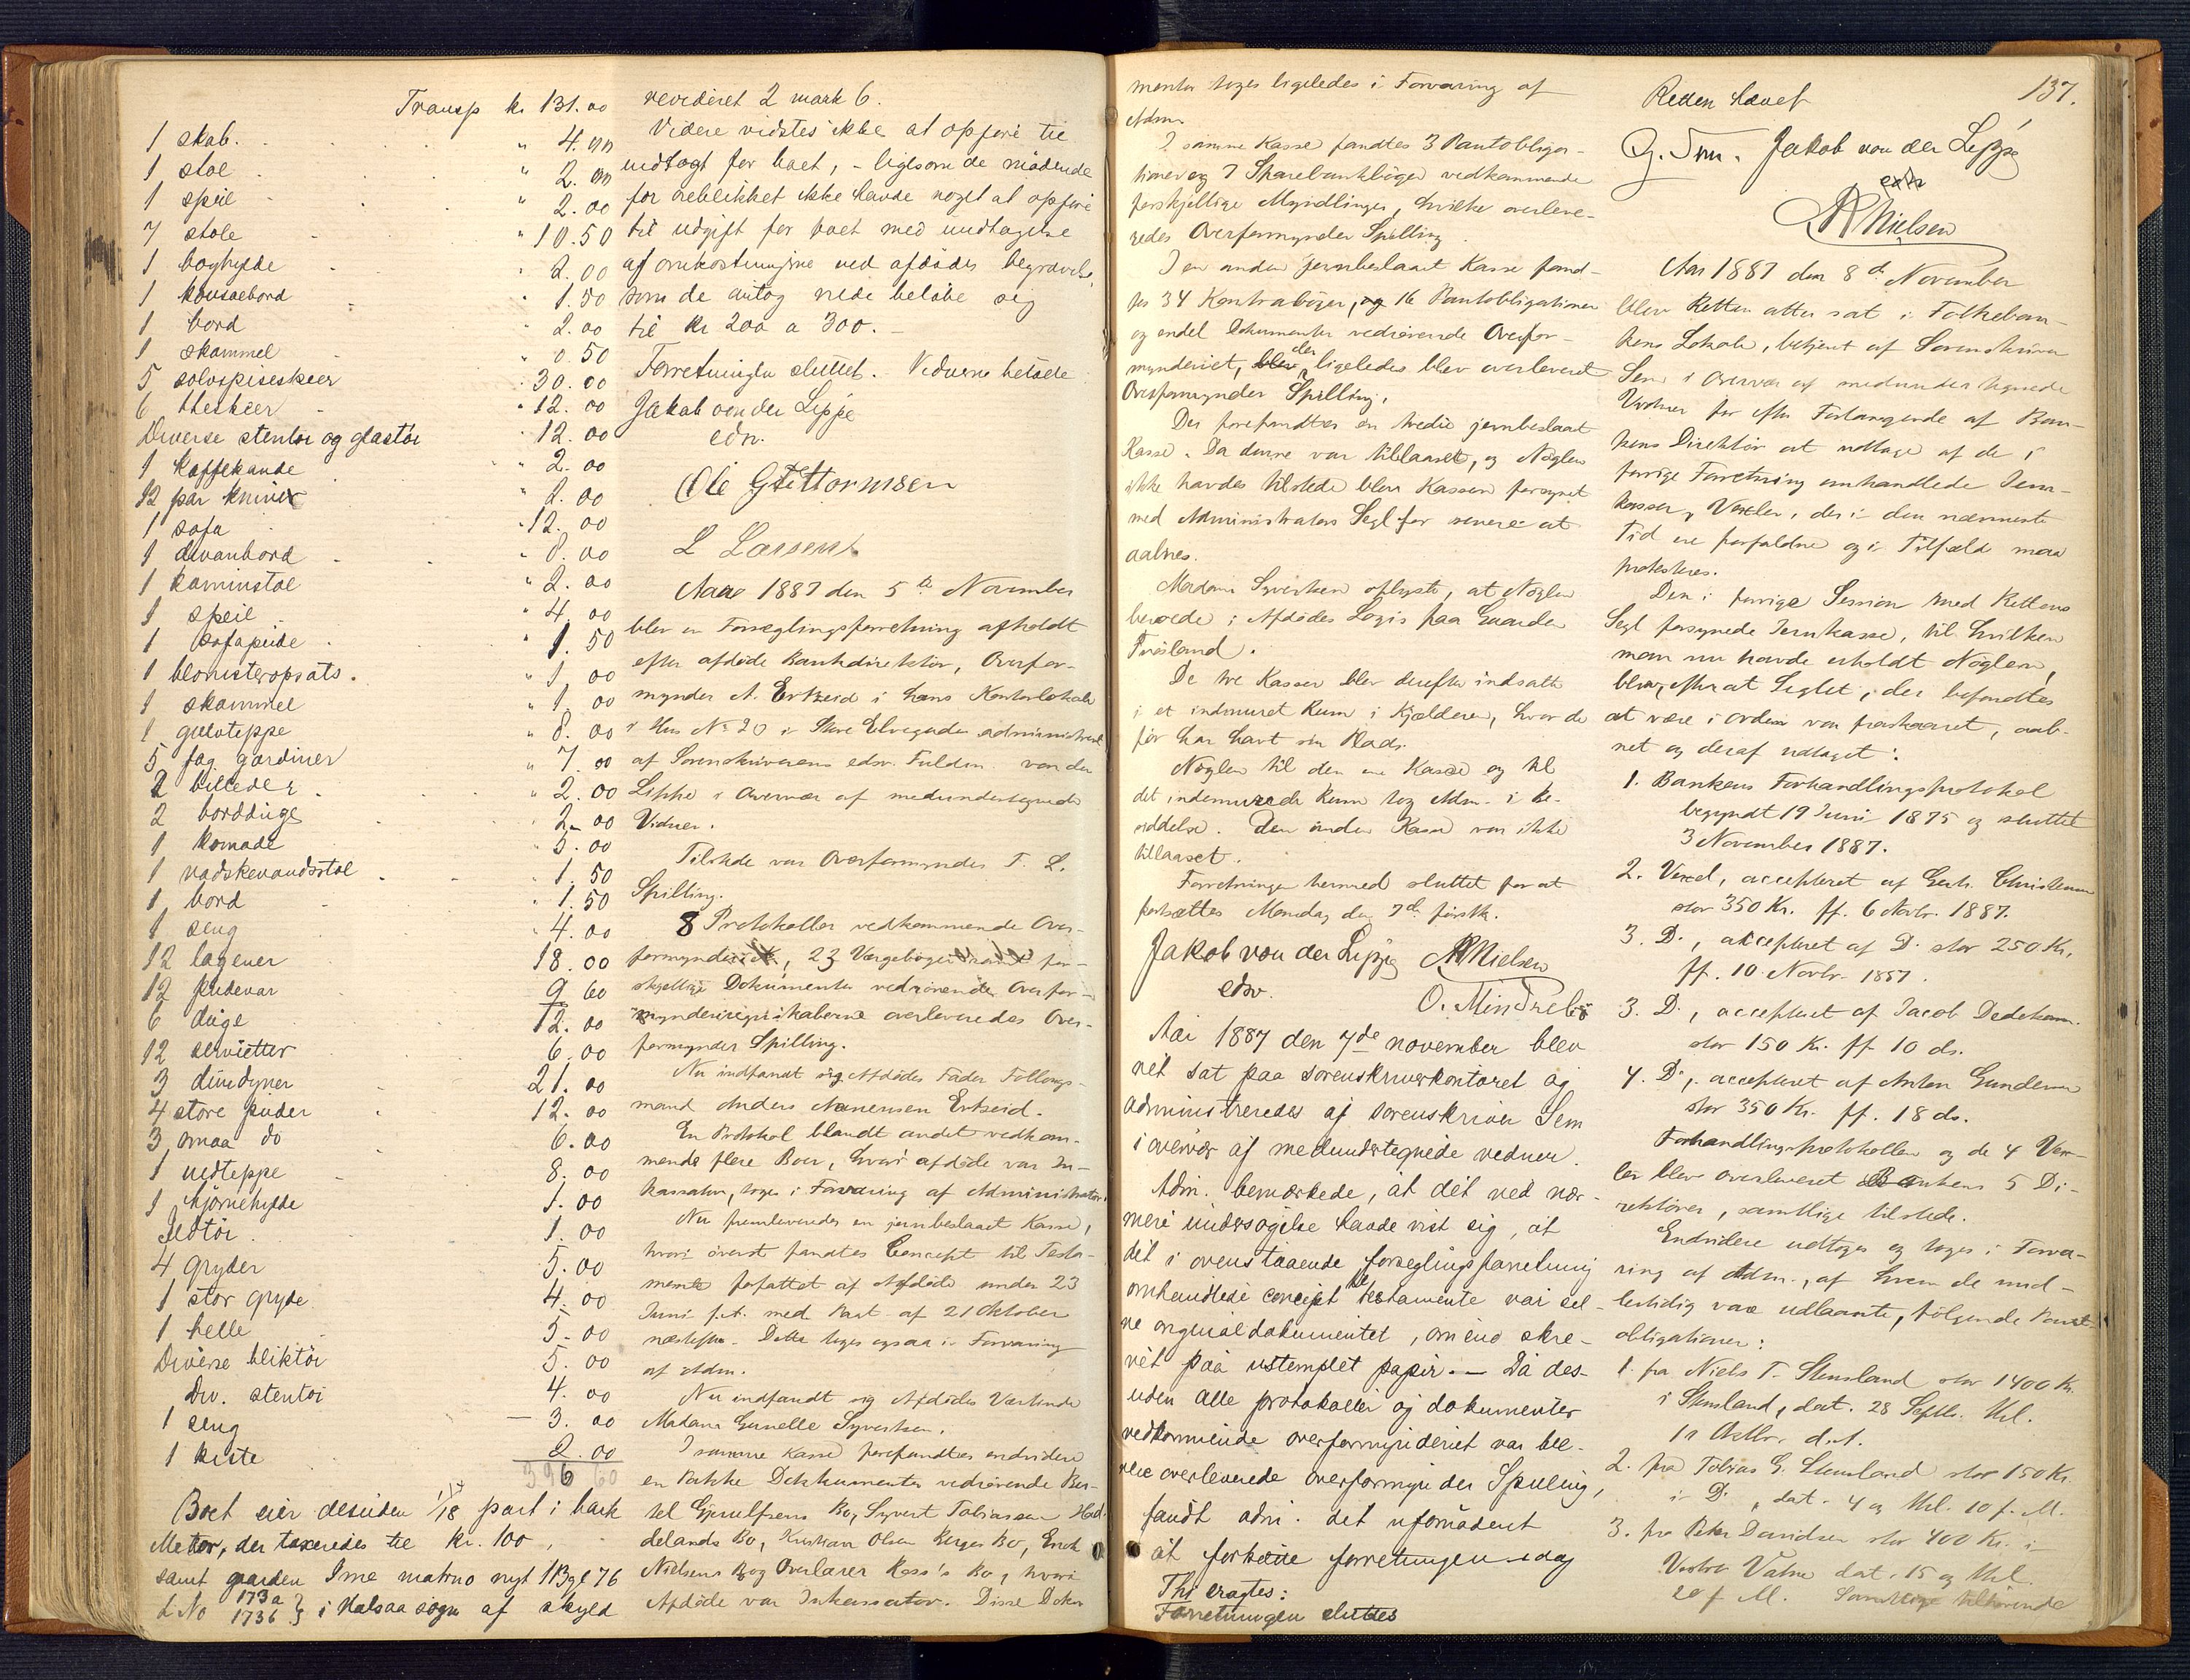 Transp kr 131.00
1 skab. " 4.00
1 stol " 2.00
1 speil " 2.00
7 stole " 10.50
1 boghylde " 2.00
1 konsolbord " 1.50
1 bord " 2.00
1 skammel " 0.50
5 solvspiseskeer " 30.00
6 theskeer " 12.00
Diverse stentöi og glastöi " 12.00
1 kaffekande " 2.00
12 par kniver " 2.00
1 sofa " 12.00
1 divanbord " 8.00
1 kaminstol " 2.00
1 speil " 4.00
1 sofapude " 1.50
1 blomsteropsats. " 1.00
1 skammel " 1.00
1 gulvteppe " 8.00
5 fag gardiner " 7.00
2 billeder " 2.00
2 bordduge 2.00
1 komode " 5.00
1 vadskevandsstol " 1.50
1 bord " 1.50
1 seng " 4.00
12 lagener 18.00
12 pudevar 9.60
6 duge 12.00
12 servietter 6.00
3 dundyner 21.00
4 store puder 12.00
3 smaa do 6.00
1 uldteppe 8.00
1 hjörnehylde 1.00
Ildtöi 1.00
4 gryder 5.00
1 stor gryde 4.00
1 helle 5.00
Diverse bliktöi 5.00
Div. stentöi 4.00
1 seng 3.00
1 kiste 2.00
396 60
Boet eier desuden 1/18 part i bark
Metor, der taxeredes til kr. 100,
samt gaarden Ime matrno nyt 113 gl 76
LNo 173a 173b } i Halsaa sogn af skyld
revideret 2 mark 6.
Videre vidstes ikke at opföre til
indtægt for boet, - ligesom de mödende
for öieblikket ikke havde noget at opföre
til udgift for boet med undtagelse
af omkostningerne ved afdödes begravelse,
som de antog vilde belöbe sig
til kr 200 a 300. -
Forretningen sluttet. Vidnerne betalte
Jakob von der Lippe
edsv.
Ole Guttormsen
L Larsen
Aar 1887 den 5te November
blev en Forseglingsforretning afholdt
efter afdöde Bankdirektör, Overfor-
mynder A. Erkseid i hans Kontorlokale
i Hus No 20 i Store Elvegaden administreret
af Sorenskriverens edsv. Fuldm. von der
Lippe i Overvær af medundertegnede
Vidner.
Tilstede var Overformynder T. L.
Spilling.
8 Protokoller vedkommende Over-
formynderiet, 23 Værgebøger for-
skjellige Dokumenter vedrörende Overfor-
mynderiregnskaberne overleveredes Over-
formynder Spilling.
Nu indfandt sig Afdödes Fader Follougs-
mand Anders Erkseid.
En Protokol blandt andet vedkom-
mende flere Boer, hvori afdöde var In-
kassator, toges i Forvaring af Administrator.
Nu fremleveredes en jernbeslaaet Kasse,
hvori överst fandtes Concept til Testa-
mente forfattet af Afdöde under 23
Juni f.A. med Paat. af 21 Oktober
næstefter. Dette toges ogsaa i Forvaring
af Adm.
Nu indfandt sig Afdödes Værtinde
Madam Gunelle Syvertsen.
I samme Kasse forefandtes endvidere
en Pakke Dokumenter vedrörende Ber-
tel Bo, Syvert Tobiassen
delands Bo, Kristian Olsen Berges Bo, Enok
Nielsens Bo og Overlærer Koss's Bo, hvori
Afdöde var Inkassator. Disse Doku
menter toges ligeledes i Forvaring af
Adm.
I samme Kasse fandtes 3 Pantobliga-
tioner og 7 Sparebankböger vedkommende
forskjellige Myndlinger, hvilke overleve-
redes Overformynder Spilling.
I en anden jernbeslaaet Kasse fand-
tes 34 Kontraböger, og 16 Pantobligationer
og endel Dokumenter vedrörende Overfor-
mynderiet, der ligeledes blev overleveret
Overformynder Spilling.
Der forefandtes en tredie jernbeslaaet
Kasse. Da denne var tillaaset, og Nöglen
ikke havdes tilstede blev Kassen forsynet
med Administrators Segl for senere at
aabnes.
Madam Syvertsen oplyste, at Nöglen
beroede i Afdödes Logis paa Gaarden
.
De tre Kasser blev derefter indsatte
i et indmuret Rum i Kjælderen, hvor de
för har havt sin Plads.
Nöglen til den ene Kasse og til
det indemurede Rum tog Adm. i Be-
siddelse. Den anden Kasse var ikke
tillaaset.
Forretningen hermed sluttet for at
fortsættes Mandag den 7de förstk.
Jakob von der Lippe ANielsen
edsv. O.
Aar 1887 den 7de november blev
ret sat paa sorenskriverkontoret og
administreredes af sorenskriver Sem
i overvær af medundertegnede vidner.
Adm. bemærkede, at det ved nær-
mere undersögelse havde vist sig, at
det i ovenstaaende forseglingsforretning
omhandlede concept til testamente var sel-
ve originaldokumentet, om end skre-
vet paa ustemplet papir. - Da des-
uden alle protokoller og dokumenter
vedkommende overformynderiet var ble-
vne overleverede overformynder Spilling,
fandt adm. det ufornödent
at fortsætte forretningen idag
Thi eragtes:
Forretningen sluttes
137.
Retten hævet
G. Sem. Jakob von der Lippe
edsv
ANielsen
Aar 1887 den 8de November
blev Retten atter sat i Folkeban-
kens Lokale, betjent af Sorenskriver
Sem i Overvær af medundertegnede
Vidner for efter Forlangende af Ban-
kens Direktör at udtage af de i
forrige Forretning omhandlede Jern-
kasser, Vexler, der i den nærmeste
Tid ere forfaldne og i Tilfælde maa
protesteres.
Den i forrige Session med Rettens
Segl forsynede Jernkasse, til hvilken
man nu havde erholdt Nöglen,
blev, efter at Seglet, der befandtes
at være i orden var fraskaaret, aab-
net og deraf udtaget:
1. Bankens Forhandlingsprotokol
begyndt 19 Juni 1875 og sluttet
3 November 1887.
2. Vexel, accepteret af Gerh. Christensen
stor 350 Kr. ff. 6 Novbr. 1887.
3. Do, accepteret af Do stor 250 Kr.
ff. 10 Novbr. 1887.
3. Do, accepteret af Jacob Dedekam.
stor 150 Kr. ff 10 ds.
4. Do, accepteret af Anton Gundersen
stor 350 Kr. ff. 18 ds.
Forhandlingsprotokollen og de 4 Vex-
ler blev overleveret Bankens 5 Di-
rektörer, samtlige tilstede.
Endvidere udtoges og toges i Forva-
ring af Adm., af hvem de imid-
lertidig vare udlaante, fölgende Pant-
obligationer:
1. fra Niels T. Stensland stor 1400 Kr.
i Stensland, dat. 28 Septbr. thl.
1s Oktbr. d.A.
2. fra Tobias G. Stensland stor 150 Kr.
i Do, dat. 4 og thl. 10 f. M.
3. fra Peter Davidsen stor 400 Kr. i
Vatne dat. 15 og thl.
20 f. M. Samtlige tilhörende